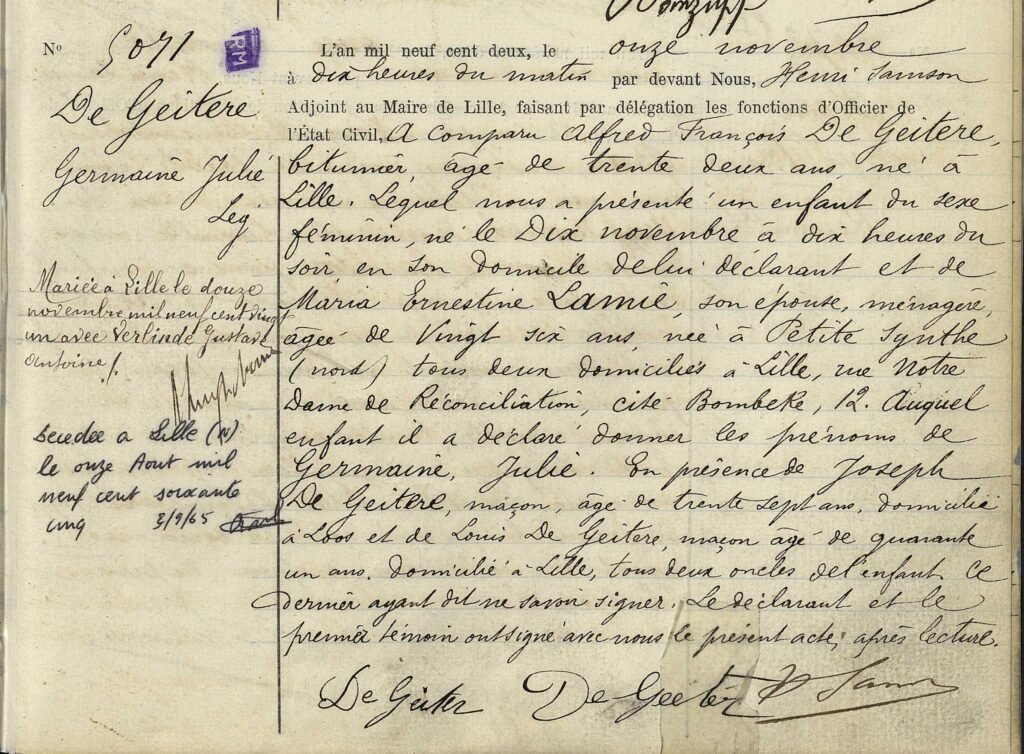 Nº 5071
RM
De Geitere
Germaine Julie
Lég
Mariée à Lille le douze
novembre mil neuf cent vingt
un avec Verlinde Gustave
Antoine ./.
Décédée à Lille (N)
le onze Aout mil
neuf cent soixante
cinq 3/9/65
L'an mil neuf cent deux, le onze novembre
à dix heures du matin par devant Nous, Henri Samson
Adjoint au Maire de Lille, faisant par délégation les fonctions d'Officier de
l'État Civil, A comparu Alfred François De Geitere,
bitumier, âgé de trente deux ans, né à
Lille. Lequel nous a présenté un enfant du sexe
féminin, né le Dix novembre à dix heures du
soir en son domicile de lui déclarant et de
Maria Ernestine Lamie, son épouse, ménagère,
âgée de Vingt six ans, née à Petite Synthe
(nord) tous deux domiciliés à Lille, rue Notre
Dame de Réconciliation, cité Bombeke, 12. Auquel
enfant il a déclaré donner les prénoms de
Germaine, Julie. En présence de Joseph
De Geitere, maçon, âgé de trente sept ans, domicilié
à Loos et de Louis De Geitere, maçon âgé de quarante
un ans, domicilié à Lille, tous deux oncles de l'enfant. Ce
dernier ayant dit ne savoir signer. Le déclarant et le
premier témoin ont signé avec nous le présent acte, après lecture.
De Geiter De Geeter H Sams